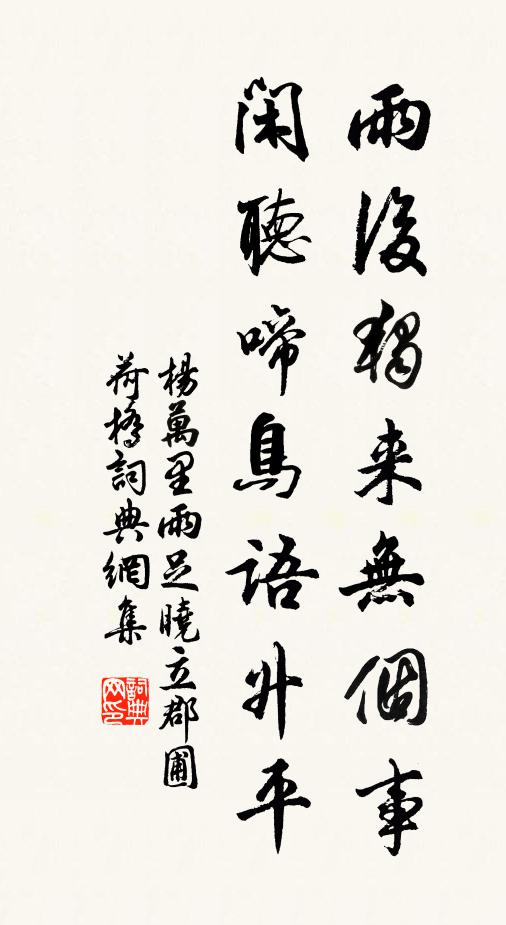 雨後獨来無個事
閑聽啼鳥語升平
楊萬里雨足曉立郡圃
荷橋詞典網集
詞典網印